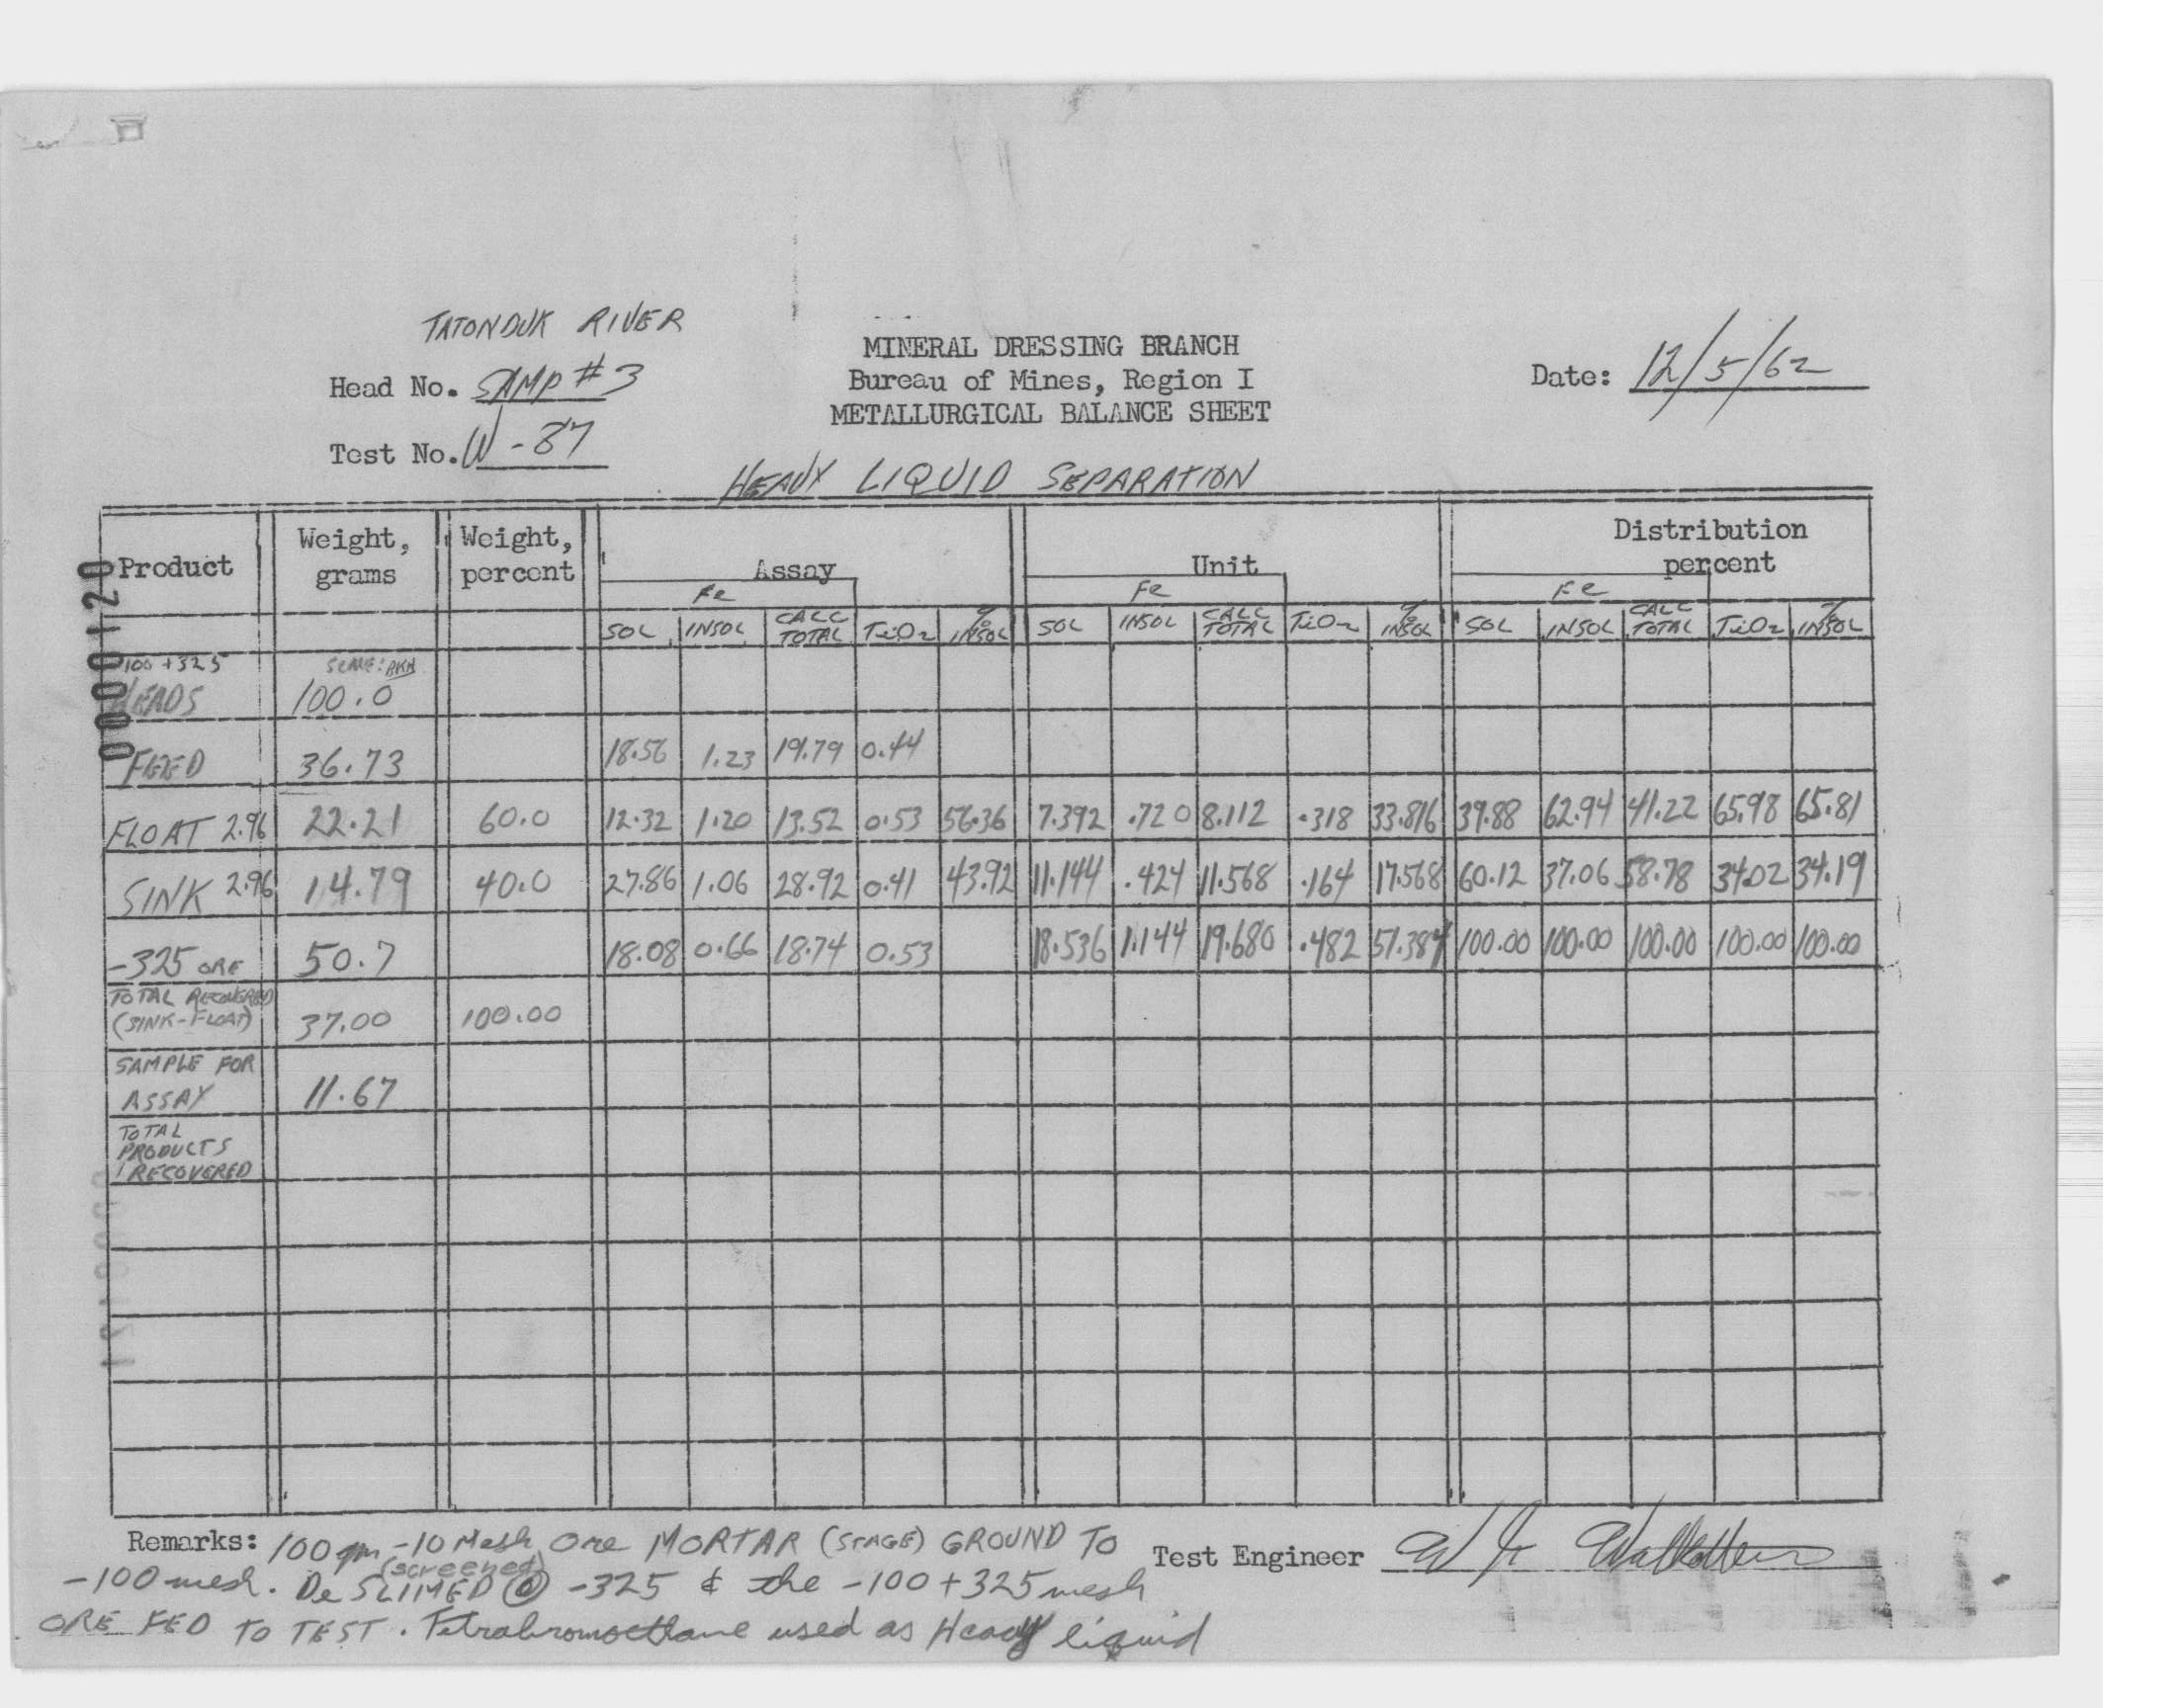 TATONDUK RIVER
Head No. SAMP #3
Test No. W-87
MINERAL DRESSING BRANCH
Bureau of Mines, Region I
METALLURGICAL BALANCE SHEET
Date: 12/5/62
HEAVY LIQUID SEPARATION
000120
Product Weight, grams Weight, percent Assay Unit Distribution percent
Fe Fe Fe
SOL INSOL CALC TOTAL TiO2 % INSOL SOL INSOL CALC TOTAL TiO2 % INSOL SOL INSOL CALC TOTAL TiO2 % INSOL
100 +325
HEADS 100.0
FEED 36.73 18.56 1.23 19.79 0.44
FLOAT 2.96 22.21 60.0 12.32 1.20 13.52 0.53 56.36 7.392 .720 8.112 .318 33.816 39.88 62.94 41.22 65.98 65.81
SINK 2.96 14.79 40.0 27.86 1.06 28.92 0.41 43.92 11.144 .424 11.568 .164 17.568 60.12 37.06 58.78 34.02 34.19
-325 ORE 50.7 18.08 0.66 18.74 0.53 18.536 1.144 19.680 .482 51.384 100.00 100.00 100.00 100.00 100.00
TOTAL RECOVERED
(SINK-FLOAT) 37.00 100.00
SAMPLE FOR
ASSAY 11.67
TOTAL
PRODUCTS
RECOVERED
Remarks: 100 gm -10 Mesh Ore MORTAR (STAGE) GROUND TO
-100 mesh. DeSLIMED (screened) @ -325 & the -100+325 mesh
ORE FED TO TEST. Tetrabromoethane used as Heavy liquid
Test Engineer